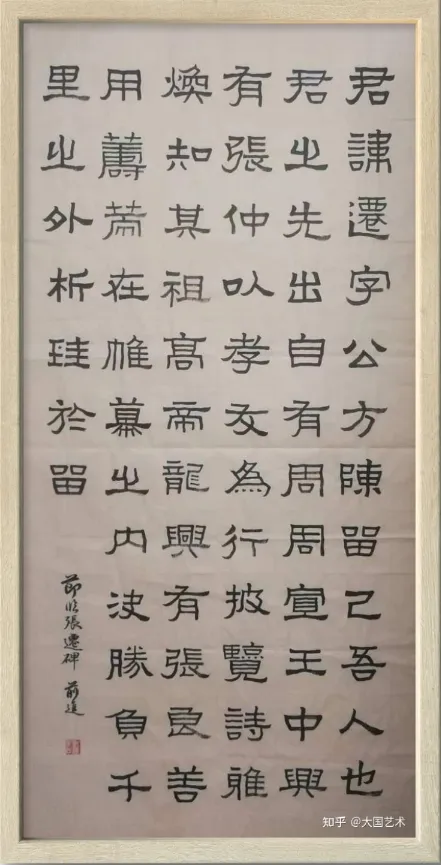 君諱遷字公方陳留己吾人也
君之先出自有周周宣王中興
有張仲以孝友為行披覽詩雅
煥知其祖高帝龍興有張良善
用籌策在帷幕之內決勝負千
里之外析珪於留
節臨張遷碑 前進
知乎 @大国艺术